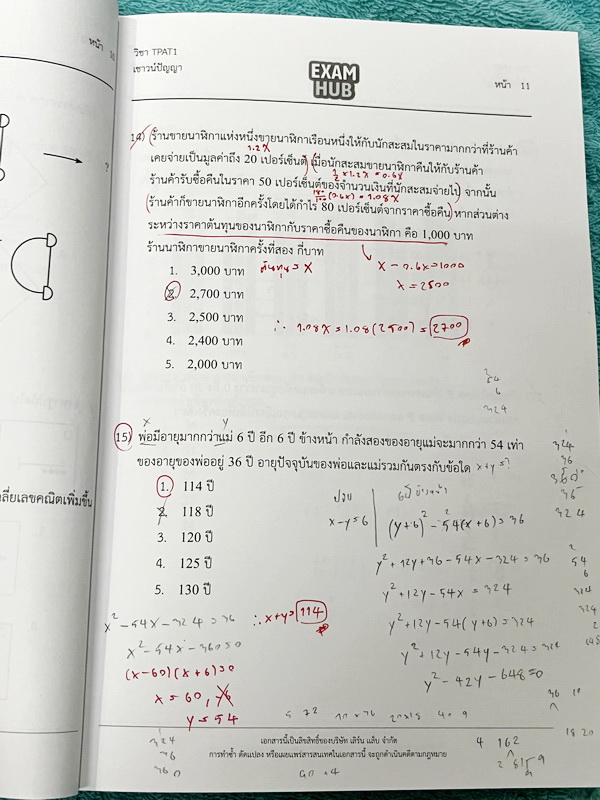 วิชา TPAT1
เชาวน์ปัญญา
EXAM
HUB
หน้า 11
14) ร้านขายนาฬิกาแห่งหนึ่งขายนาฬิกาเรือนหนึ่งให้กับนักสะสมในราคามากกว่าที่ร้านค้า
1.2x
เคยจ่ายเป็นมูลค่าถึง 20 เปอร์เซ็นต์ เมื่อนักสะสมขายนาฬิกาคืนให้กับร้านค้า
ร้านค้ารับซื้อคืนในราคา 50 เปอร์เซ็นต์ของจำนวนเงินที่นักสะสมจ่ายไป จากนั้น
ร้านค้าก็ขายนาฬิกาอีกครั้งโดยได้กำไร 80 เปอร์เซ็นต์จากราคาซื้อคืน หากส่วนต่าง
ระหว่างราคาต้นทุนของนาฬิกากับราคาซื้อคืนของนาฬิกา คือ 1,000 บาท
ร้านนาฬิกาขายนาฬิกาครั้งที่สอง กี่บาท
1. 3,000 บาท
ต้นทุน = x
x - 0.6x = 1000
2. 2,700 บาท
x = 2500
3. 2,500 บาท
∴ 1.08x = 1.08(2500) = 2700
4. 2,400 บาท
5. 2,000 บาท
x y
15) พ่อมีอายุมากกว่าแม่ 6 ปี อีก 6 ปี ข้างหน้า กำลังสองของอายุแม่จะมากกว่า 54 เท่า
ของอายุของพ่ออยู่ 36 ปี อายุปัจจุบันของพ่อและแม่รวมกันตรงกับข้อใด x+y=?
1. 114 ปี
2. 118 ปี
3. 120 ปี
4. 125 ปี
5. 130 ปี
x-y=6
(y+6)² - 54(x+6) = 36
y²+12y+36-54x-324 = 36
y²+12y-54x = 324
y²+12y-54(y+6) = 324
y²+12y-54y-324 = 324
y²-42y-648=0
x²-54x-324=36
x²-54x-360=0
(x-60)(x+6)=0
x=60, -6
y=54
∴ x+y=114
เอกสารนี้เป็นลิขสิทธิ์ของบริษัท เลิร์น แล็บ จำกัด
การทำซ้ำ ดัดแปลง หรือเผยแพร่สารสนเทศในเอกสารนี้ จะถูกดำเนินคดีตามกฎหมาย